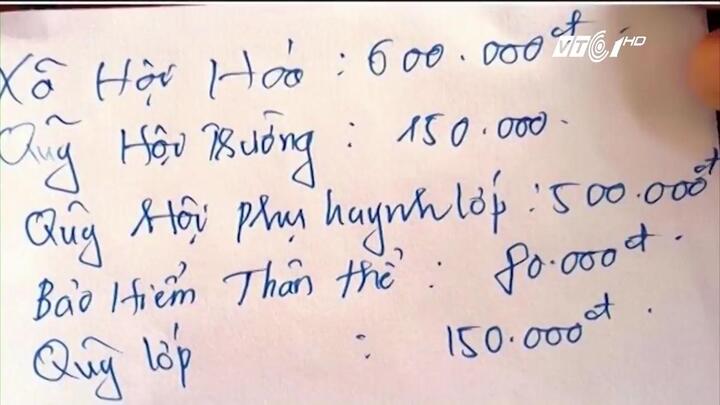 VTC1 HD
Xã Hội Hóa : 600.000đ
Quỹ Hội Trường : 150.000.
Quỹ Hội phụ huynh lớp : 500.000đ
Bảo Hiểm Thân thể : 80.000đ.
Quỹ lớp : 150.000đ.